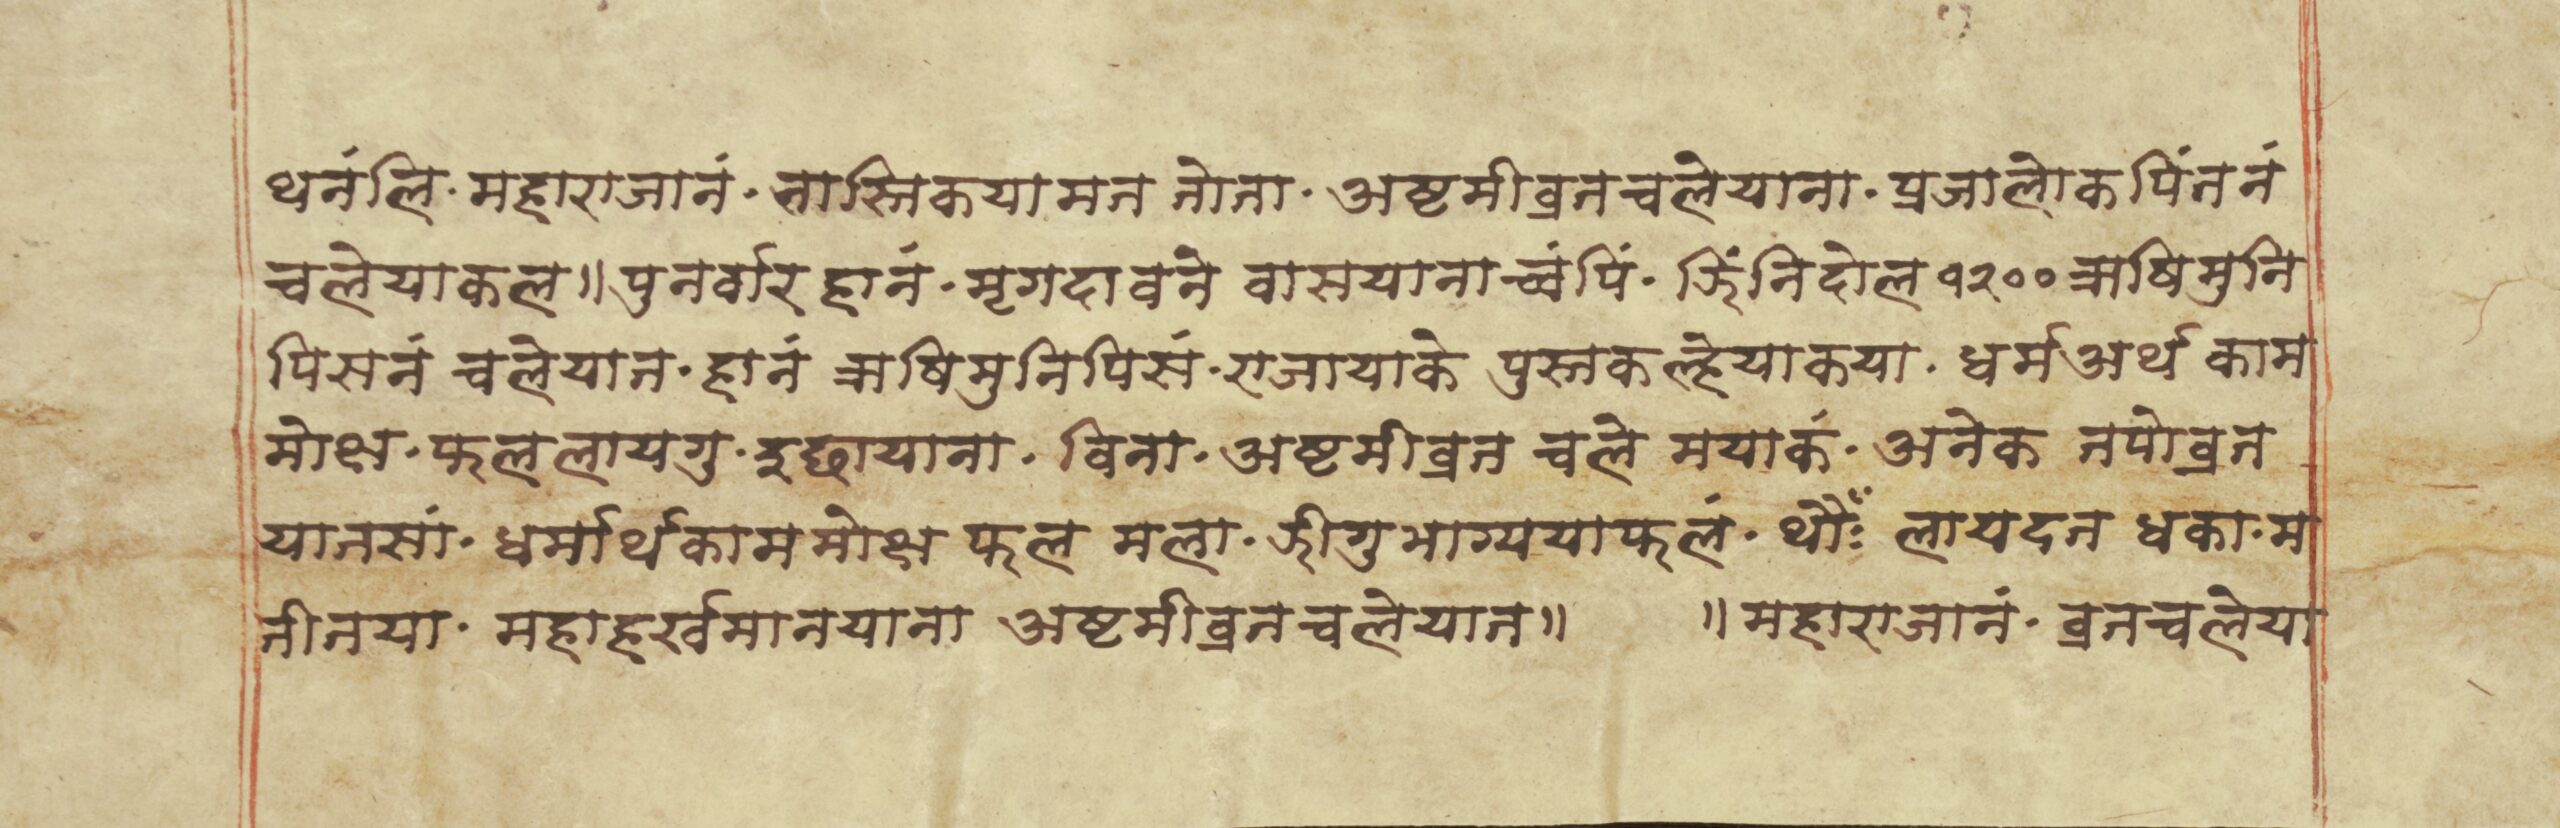 थनंलि· महाराजानं· नास्तिकयामन तोता· अष्टमीव्रतचलेयाना· प्रजालोकपिंतनं
चलेयाकल॥ पुनर्वार ह्वानं· मृगदावने वासयानाच्वंपिं· झिंनिदोल १२०० ऋषिमुनि
पिसनं चलेयात· ह्वानं ऋषिमुनिपिसं· राजायाके पुस्तकल्ह्येयाकया· धर्म अर्थ काम
मोक्ष· फललायगु· इछायाना· विना· अष्टमीव्रत चले मयाकं· अनेक तपोव्रत
यातसां· धर्मार्थकाममोक्ष फल मला· झीगु भाग्ययाफलं· थौं लायदत धका· म
तीतया· महाहर्खमानयाना अष्टमीव्रतचलेयात॥ ॥ महाराजानं· व्रतचलेया